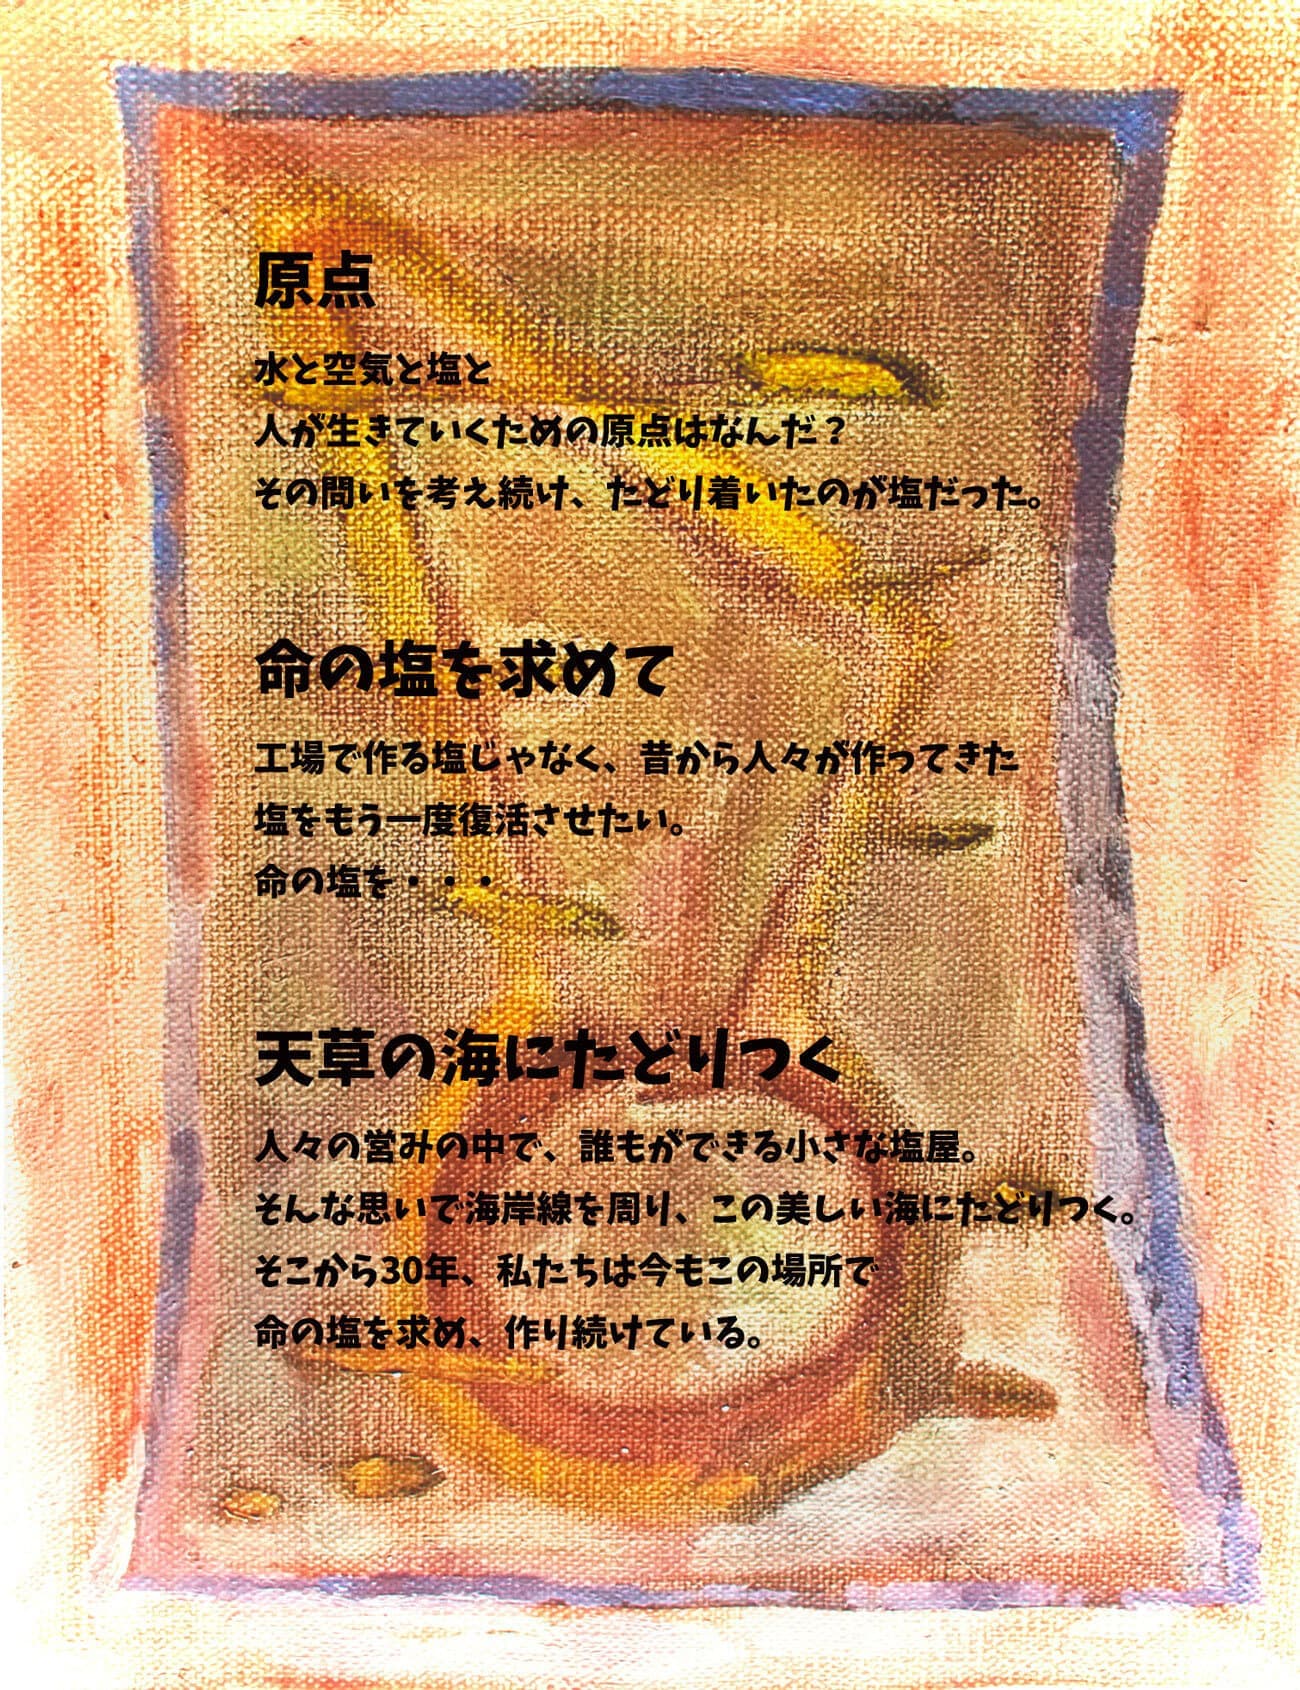 原点
水と空気と塩と
人が生きていくための原点はなんだ？
その問いを考え続け、たどり着いたのが塩だった。
命の塩を求めて
工場で作る塩じゃなく、昔から人々が作ってきた
塩をもう一度復活させたい。
命の塩を・・・
天草の海にたどりつく
人々の営みの中で、誰もができる小さな塩屋。
そんな思いで海岸線を周り、この美しい海にたどりつく。
そこから30年、私たちは今もこの場所で
命の塩を求め、作り続けている。